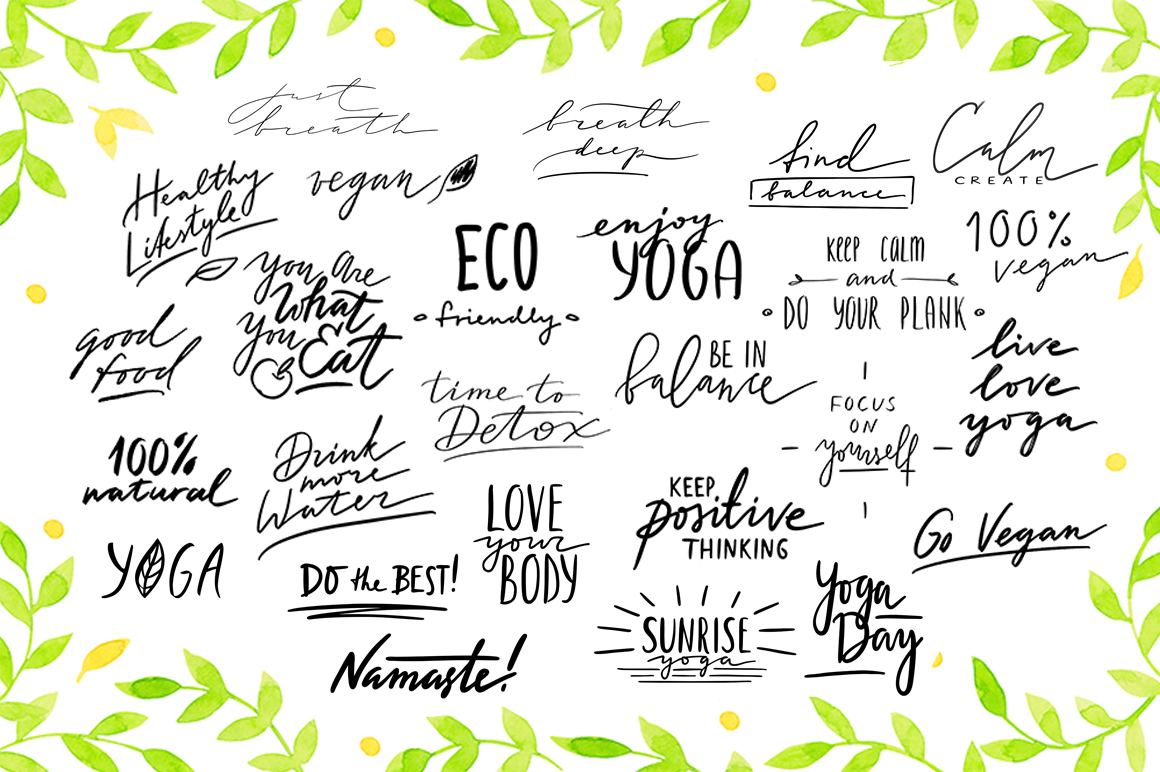 just
breath
breath
deep
find
balance
Calm
CREATE
Healthy
Lifestyle
vegan
ECO
friendly
enjoy
YOGA
KEEP CALM
and
DO YOUR PLANK
100%
vegan
You Are
What
you
Eat
good
food
time to
Detox
BE IN
balance
FOCUS
ON
yourself
live
love
yoga
100%
natural
Drink
more
Water
LOVE
your
BODY
KEEP
positive
THINKING
Go Vegan
YOGA
DO the BEST!
SUNRISE
yoga
Yoga
Day
Namaste!